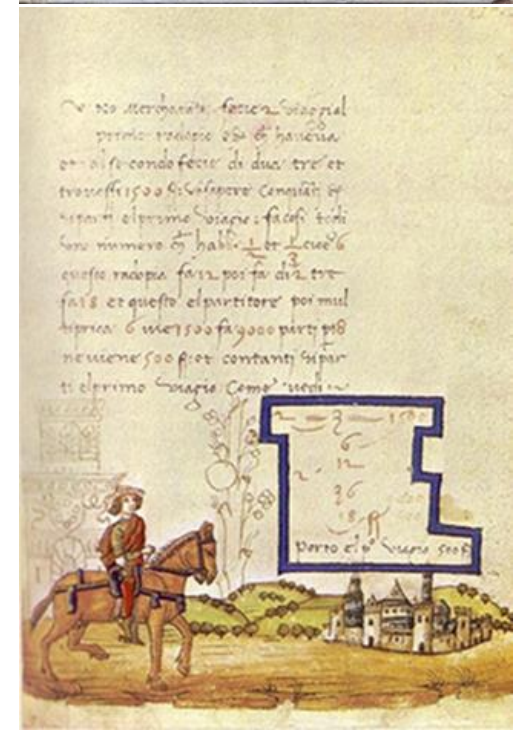 No merchatante fecie 2 viaggi al
primo radopio oba ch haveva
et al secondo fecie di dua tre et
trovossi 1500 vo sapere con quati
riparti el primo viagio fa cosi
uno numero ch habbi 1/2 et 1/3 cioe 6
questo radopia fa 12 poi fa di 2 tre
fa 18 et questo el partitore poi mul
tiprica 6 vie 1500 fa 9000 parti p 18
ne viene 500 et contanti ripar
ti el primo viagio come vedi
2 3 1500
6
2 12
36
18
Porto el p° viagio 500